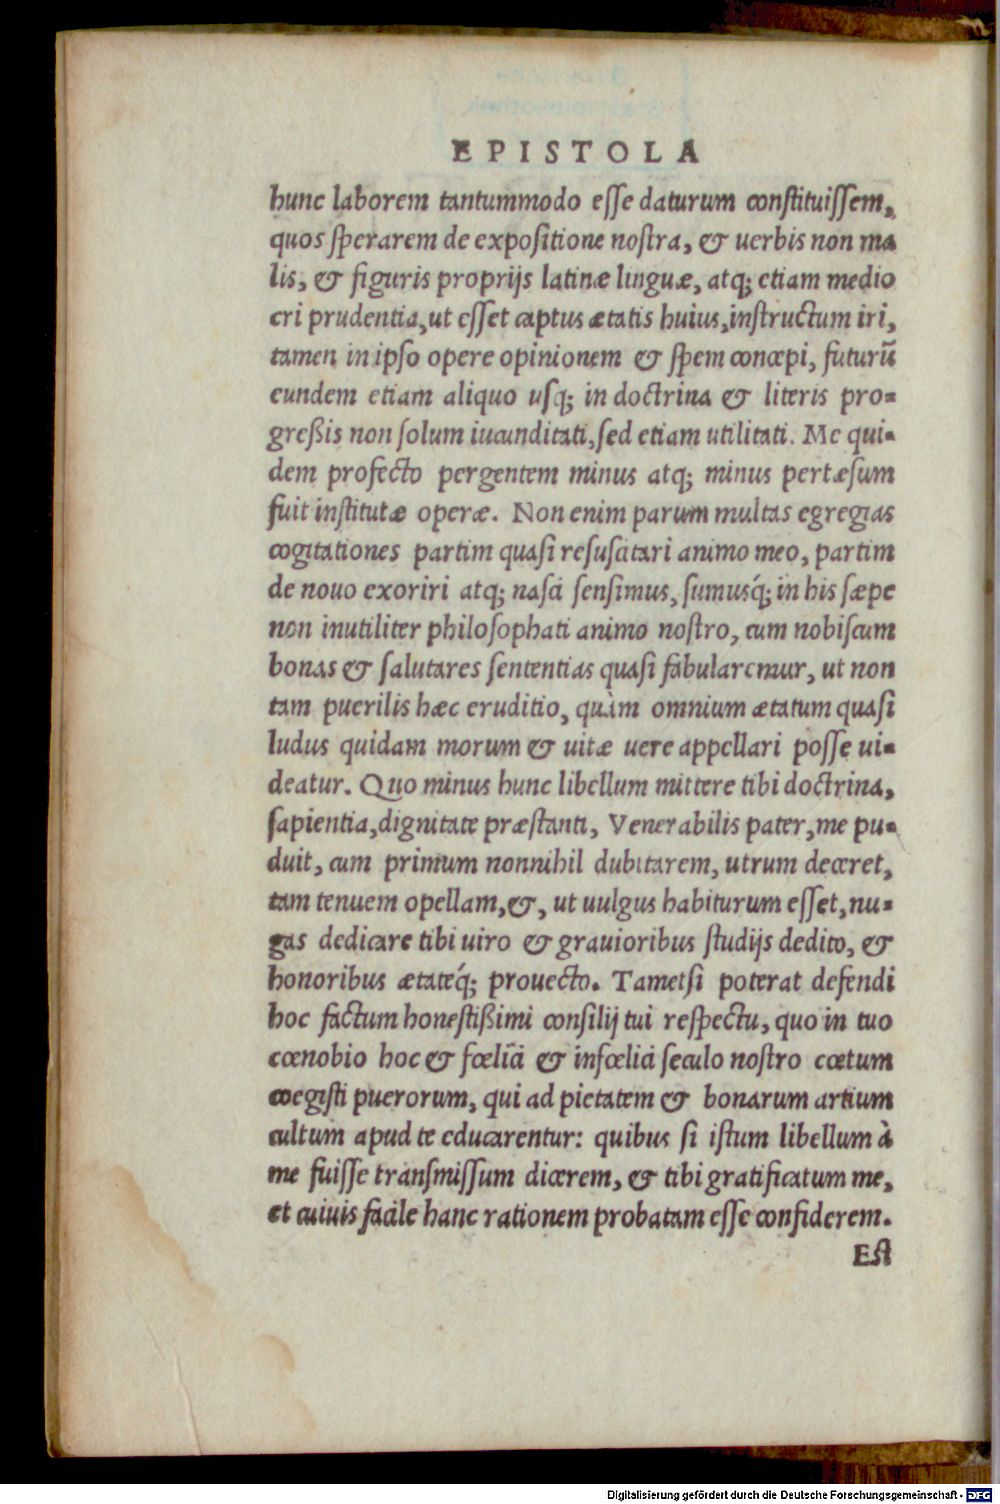 EPISTOLA
hunc laborem tantummodo esse daturum constituissem,
quos sperarem de expositione nostra, & uerbis non ma
lis, & figuris proprijs latinæ linguæ, atq; etiam medio
cri prudentia, ut esset captus ætatis huius, instructum iri,
tamen in ipso opere opinionem & spem concepi, futurũ
eundem etiam aliquo usq; in doctrina & literis pro-
greßis non solum iucunditati, sed etiam utilitati. Me qui-
dem profecto pergentem minus atq; minus pertæsum
fuit institutæ operæ. Non enim parum multas egregias
cogitationes partim quasi resuscitari animo meo, partim
de nouo exoriri atq; nasci sensimus, sumusq́; in his sæpe
non inutiliter philosophati animo nostro, cum nobiscum
bonas & salutares sententias quasi fabularemur, ut non
tam puerilis hæc eruditio, quàm omnium ætatum quasi
ludus quidam morum & uitæ uere appellari posse ui-
deatur. Quo minus hunc libellum mittere tibi doctrina,
sapientia, dignitate præstanti, Venerabilis pater, me pu-
duit, cum primum nonnihil dubitarem, utrum deceret,
tam tenuem opellam, &, ut uulgus habiturum esset, nu-
gas dedicare tibi uiro & grauioribus studijs dedito, &
honoribus ætateq́; prouecto. Tametsi poterat defendi
hoc factum honestißimi consilij tui respectu, quo in tuo
cœnobio hoc & fœlici & infœlici seculo nostro cœtum
coegisti puerorum, qui ad pietatem & bonarum artium
cultum apud te educarentur: quibus si istum libellum à
me fuisse transmissum dicerem, & tibi gratificatum me,
et cuiuis facile hanc rationem probatam esse confiderem.
Est
Digitalisierung gefördert durch die Deutsche Forschungsgemeinschaft - DFG